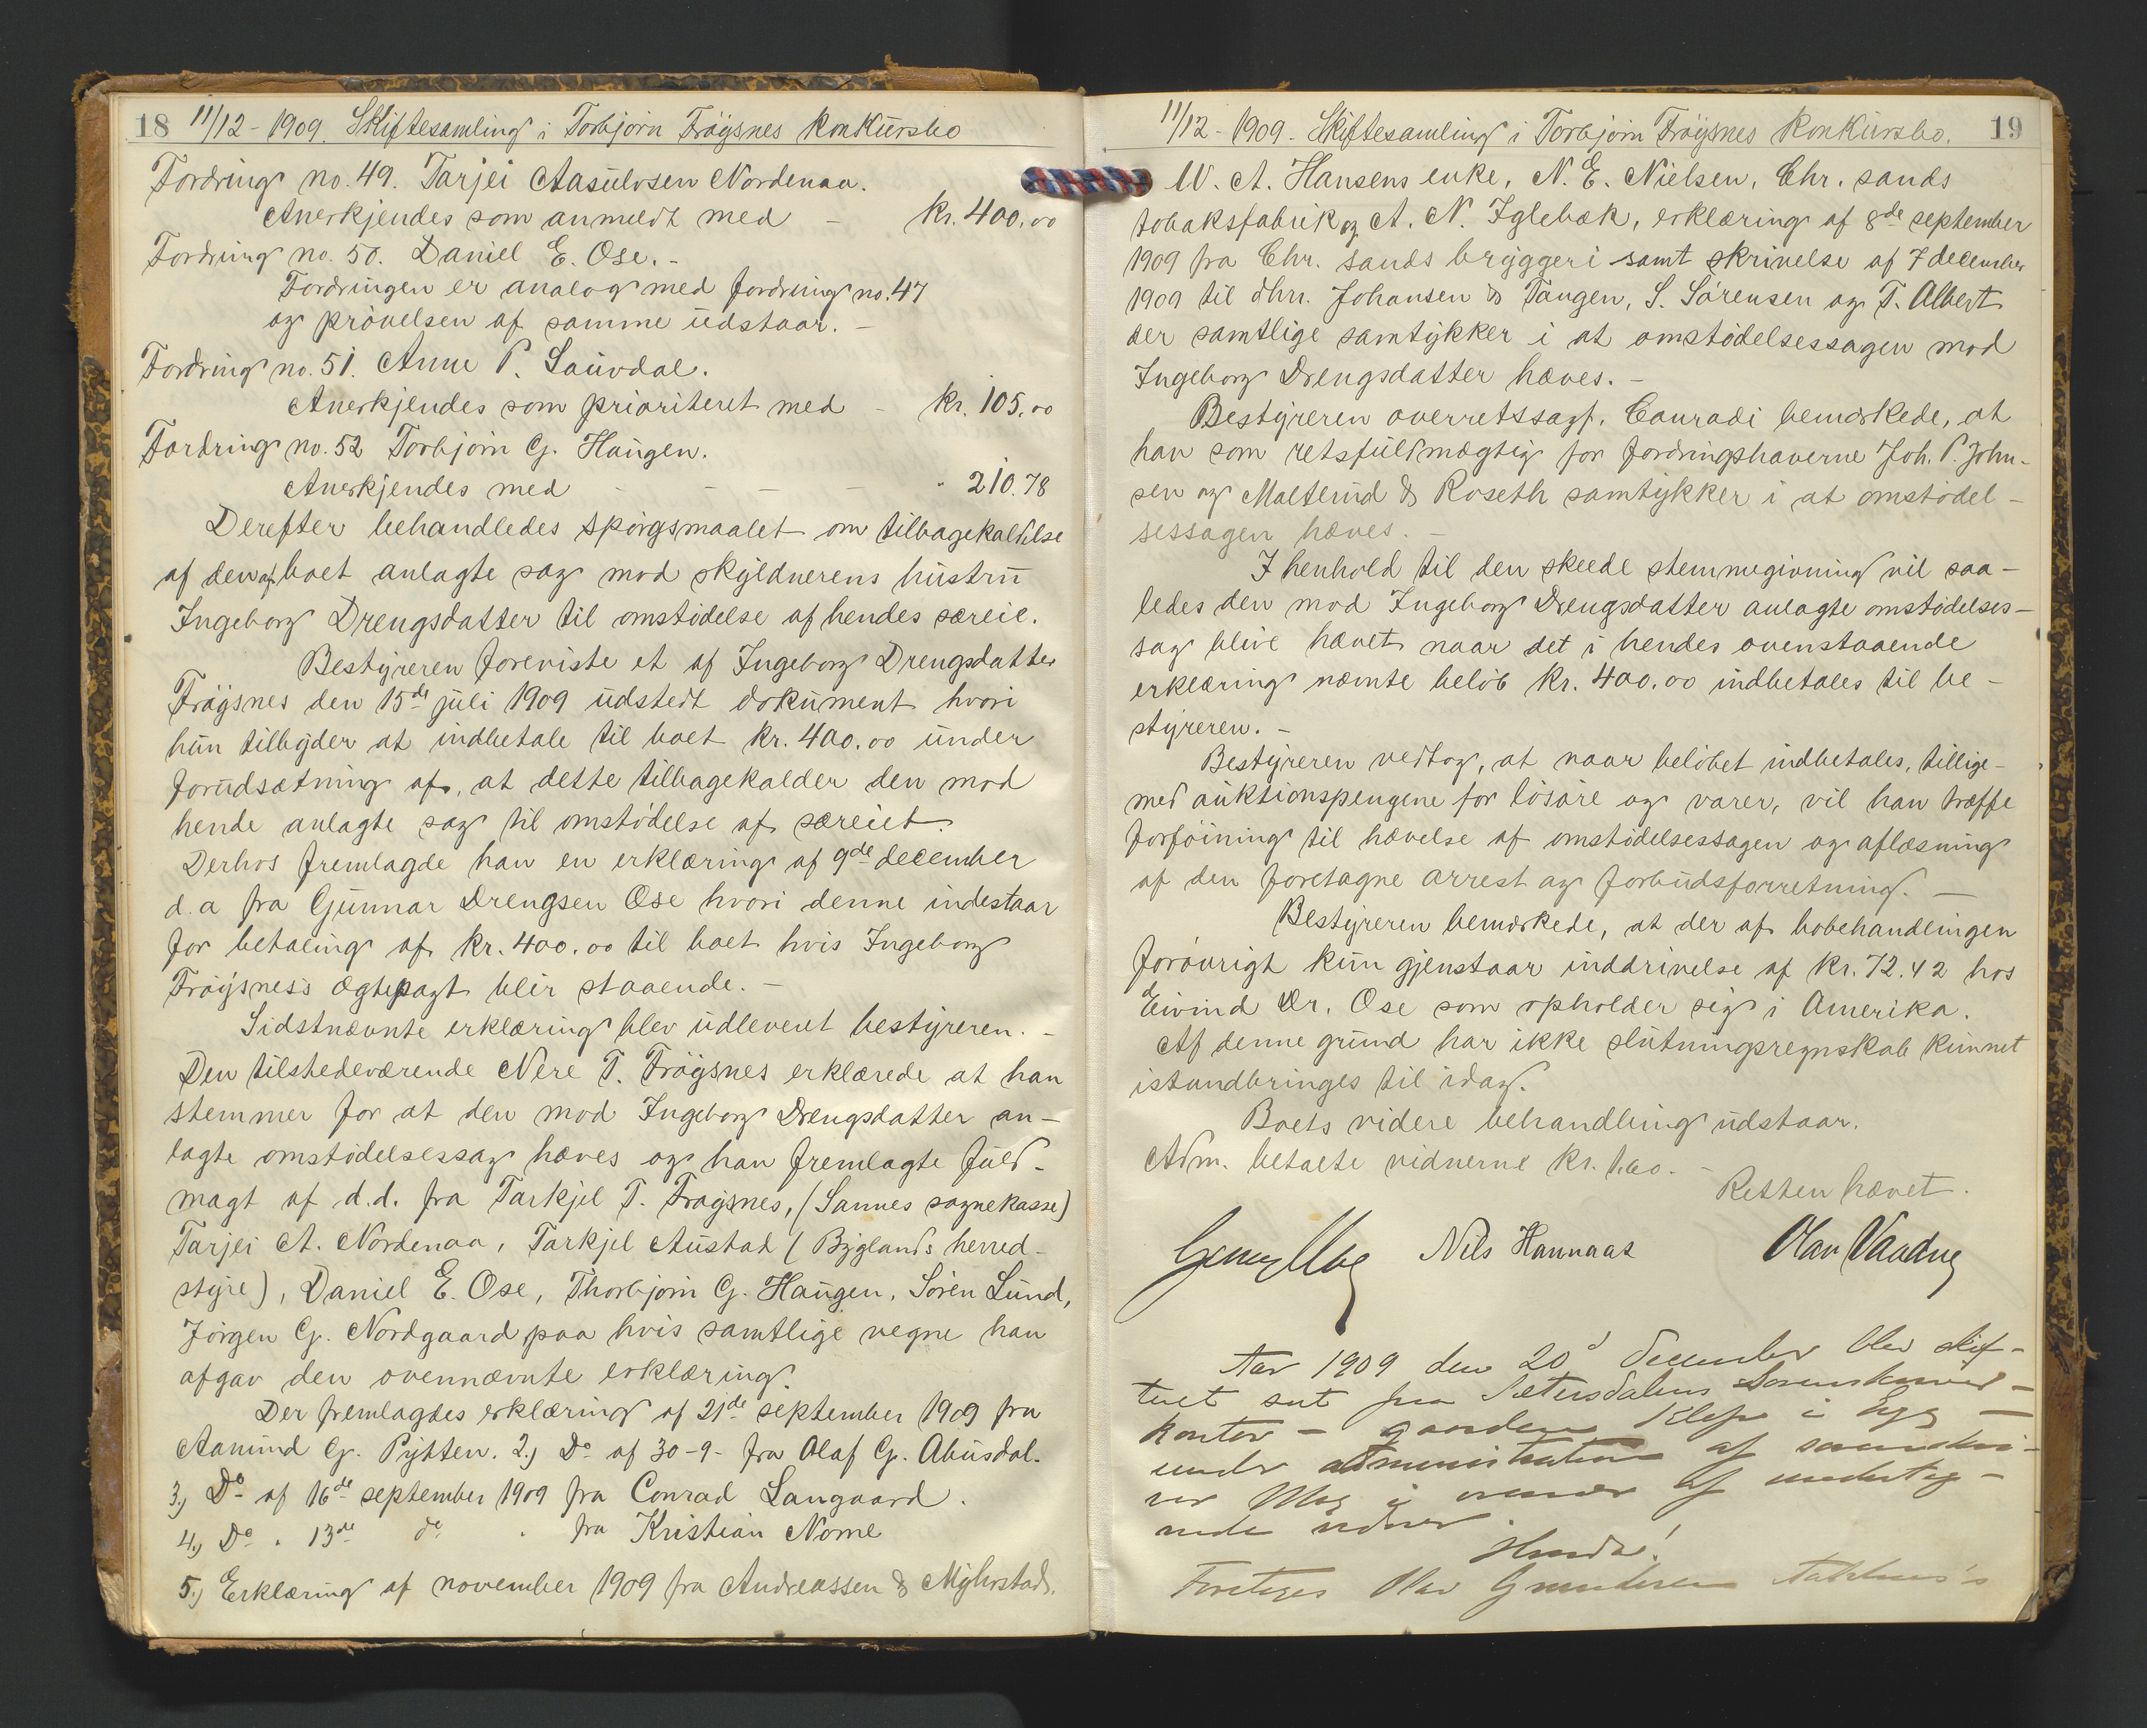 18 11/12 - 1909. Skiftesamling i Torbjørn Frøysnes konkursbo
Fordring no. 49. Tarjei Aasulvsen Nordenaa.
Anerkjendes som anmeldt med - kr. 400.00
Fordring no. 50. Daniel E. Ose. -
Fordringen er analog med fordring no. 47
og prøvelsen af samme udstaar. -
Fordring no. 51. Anne P. Sauvdal.
Anerkjendes som prioriteret med - kr. 105.00
Fordring no. 52 Torbjørn G. Haugen.
Anerkjendes med - - - - " 210.78
Derefter behandledes spørgsmaalet om tilbagekaldelse
af den af boet anlagte sag mod skyldnerens hustru
Ingeborg Drengsdatter til omstødelse af hendes særeie.
Bestyreren foreviste et af Ingeborg Drengsdatter
Frøysnes den 15de juli 1909 udstedt dokument hvori
hun tilbyder at indbetale til boet kr. 400.00 under
forudsætning af, at dette tilbagekalder den mod
hende anlagte sag til omstødelse af særeiet.
Derhos fremlagde han en erklæring af 9de december
d.a fra Gunnar Drengsen Ose hvori denne indestaar
for betaling af kr. 400.00 til boet hvis Ingeborg
Frøysnes's ægtepagt blir staaende. -
Sidstnævnte erklæring blev udleveret bestyreren. -
Den tilstedeværende Nere T. Frøysnes erklærede at han
stemmer for at den mod Ingeborg Drengsdatter an-
lagte omstødelsessag hæves og han fremlagte fuld-
magt af d.d. fra Tarkjel T. Frøysnes, (Sannes sognekasse)
Tarjei A. Nordenaa, Tarkjel Austad (Byglands herred-
styre), Daniel E. Ose, Thorbjørn G. Haugen, Søren Lund,
Jørgen G. Nordgaard paa hvis samtlige vegne han
afgav den ovennævnte erklæring.
Der fremlagdes erklæring af 21de september 1909 fra
Aanund G. Pytten. 2.) Do af 30-9- fra Olaf G. Abusdal.
3.) Do af 16de september 1909 fra Conrad Langaard.
4.) Do " 13de do " fra Kristian Nome
5.) Erklæring af november 1909 fra Andreassen & Myhrstad.
11/12 - 1909. Skiftesamling i Torbjørn Frøysnes konkursbo. 19
W. A. Hansens enke, N. E. Nielsen, Chr. sands
tobaksfabrik og A. N. Iglebæk, erklæring af 8de september
1909 fra Chr. sands bryggeri samt skrivelse af 7 december
1909 til dhrr. Johansen & Tangen, S. Sørensen og T. Albert
der samtlige samtykker i at omstødelsessagen mod
Ingeborg Drengsdatter hæves. -
Bestyreren overretssagf. Conradi bemærkede, at
han som retsfuldmægtig for fordringshaverne Joh. P. John-
sen og Malterud & Roseth samtykker i at omstødel-
sessagen hæves. -
I henhold til den skeede stemmegivning vil saa-
ledes den mod Ingeborg Drengsdatter anlagte omstødelses-
sag blive hævet naar det i hendes ovenstaaende
erklæring nævnte beløb kr. 400.00 indbetales til be-
styreren. -
Bestyreren vedtog, at naar beløbet indbetales, tillige-
med auktionspengene for løsøre og varer, vil han træffe
forføining til hævelse af omstødelsessagen og aflæsning
af den foretagne arrest og forbudsforretning. -
Bestyreren bemærkede, at der af bobehandlingen
forøvrigt kun gjenstaar inddrivelse af kr. 72.42 hos
Eivind Dr. Ose som opholder sig i Amerika.
Af denne grund har ikke slutningsregnskab kunnet
istandbringes til idag.
Boets videre behandling udstaar.
Adm. betalte vidnerne kr. 1.60. -
Retten hævet.
Nils Hannaas Olav Vaadne
Aar 1909 den 20d december blev skif-
teret sat paa Sætersdalens Sorenskriver-
kontor - gaarden Klep i
under administration af sorenskri-
ver i overvær af underteg-
nede vidner.
Hvorda!
Foretoges Olav Gundersen